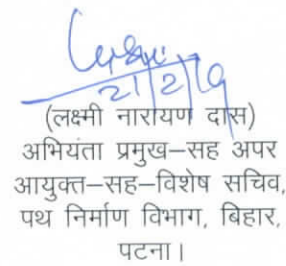 21/2/19
(लक्ष्मी नारायण दास)
अभियंता प्रमुख–सह अपर
आयुक्त–सह–विशेष सचिव,
पथ निर्माण विभाग, बिहार,
पटना।